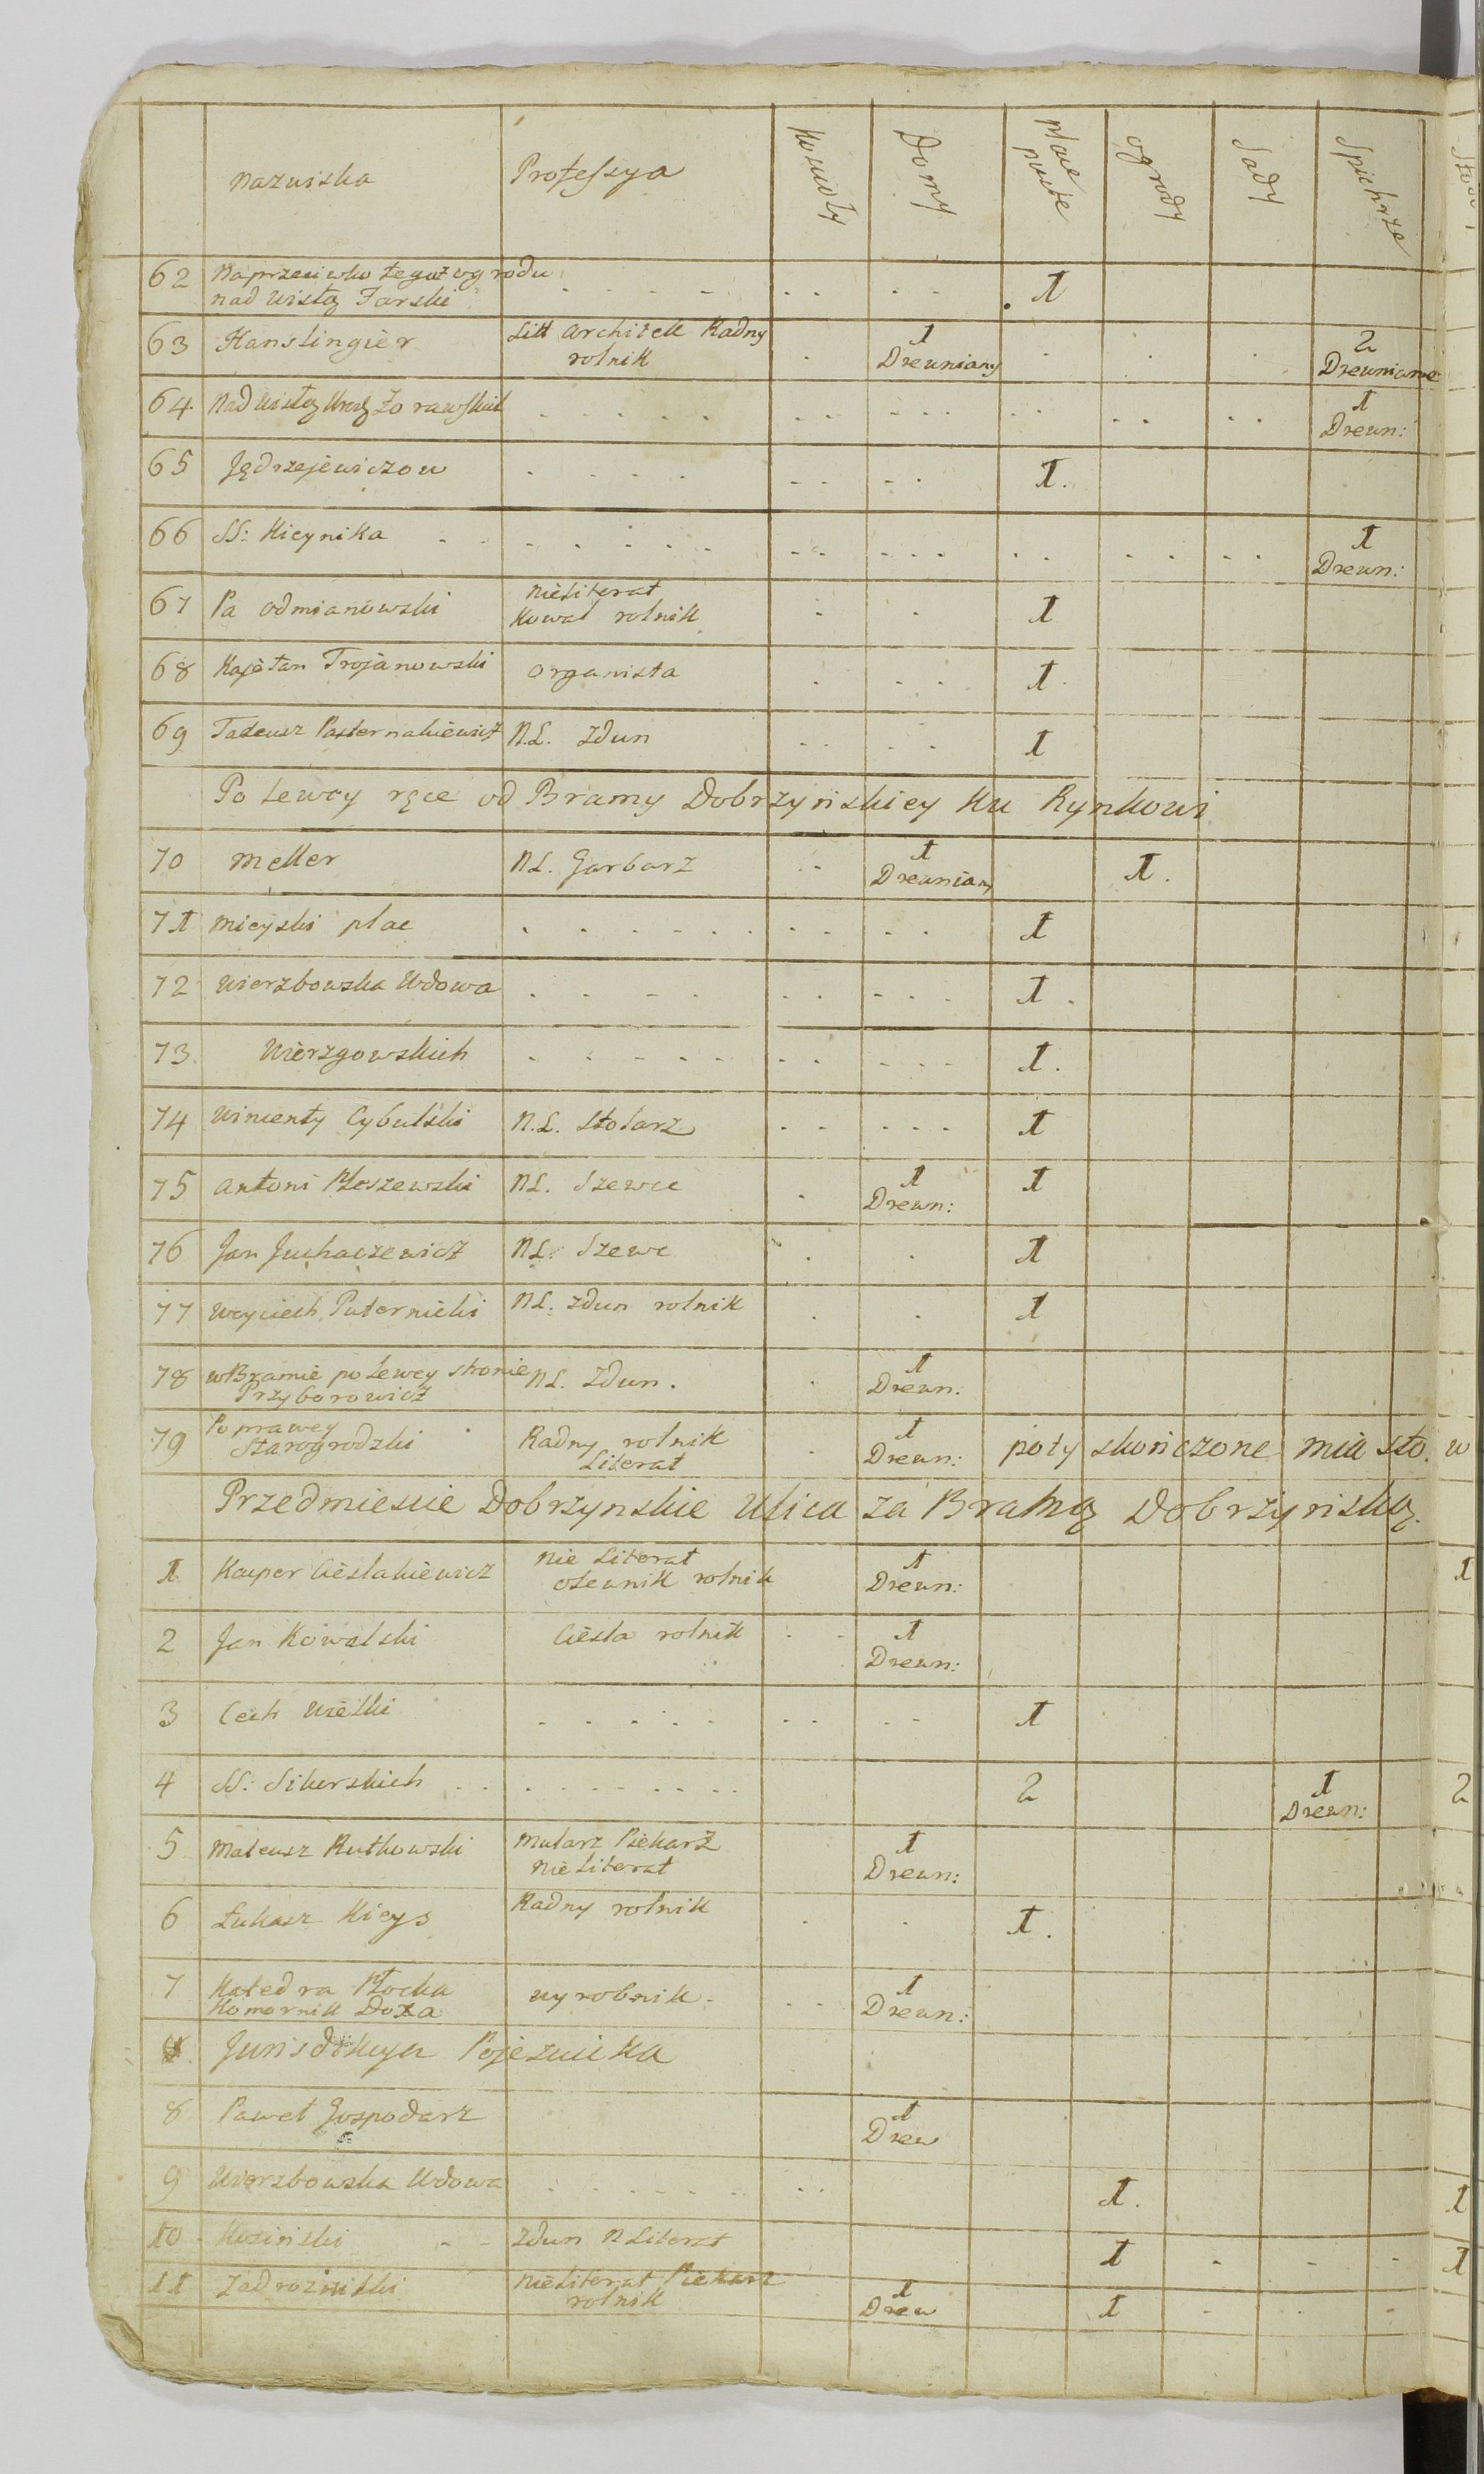 Nazwiska Professya Kościoły Domy place puste ogrody Sady Spichrze
62 Naprzeciwko tegoż ogrodu
nad Wisłą Jarski 1
63 Hanslingier Litt architekt Radny
rolnik 1
Drewniany 2
Drewniane
64 Nad Wisłą Żorawskich 1
Drewn:
65 Jędrzejewiczow 1.
66 SS: Kicynika 1
Drewn:
67 Pa odmianowski nieliterat
Kowal rolnik 1
68 Kajetan Trojanowski organista 1
69 Tadeusz Pasternakiewicz N.L. Zdun 1
Po lewey ręce od Bramy Dobrzyńskiey ku Rynkowi
70 Meller NL. Garbarz 1
Drewniany 1.
71 Mieyski plac 1
72 Wierzbowska Wdowa 1.
73 Wierzgowskich 1.
74 Wincenty Cybulski N.L. Stolarz 1
75 Antoni Płoszewski NL. Szewc 1
Drewn: 1
76 Jan Juchaczewicz NL: Szewc 1
77 Woyciech Puternicki NL: Zdun rolnik 1
78 w Bramie po lewey stronie
Przyborowicz NL. Zdun. 1
Drewn:
79 Po prawey
Starogrodzki Radny rolnik
Literat 1
Drewn: poty skończone miasto. w
Przedmieście Dobrzynskie Ulica za Bramą Dobrzyńską.
1 Kacper Cieslakiewicz nie Literat
rolnik 1
Drewn: 1
2 Jan Kowalski Ciesla rolnik 1
Drewn:
3 Cech Wielki 1
4 SS: Sikerskich 2 1
Drewn: 2
5 Mateusz Rutkowski mularz Piekarz
nieliterat 1
Drewn:
6 Łukasz Kieys Radny rolnik 1.
7 Katedra Płocka
Komornik Doxa wyrobnik 1
Drewn:
Jurisdikcya
8 Paweł Gospodarz 1
Drew
9 Wierzbowska Wdowa 1. 1
10 Kosinski Zdun N Literat 1 1
11 Zadrozinski nieliterat Piekarz
rolnik 1
Drew 1